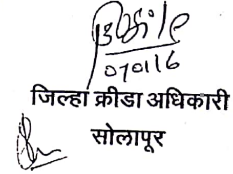 070116
जिल्हा क्रीडा अधिकारी
सोलापूर